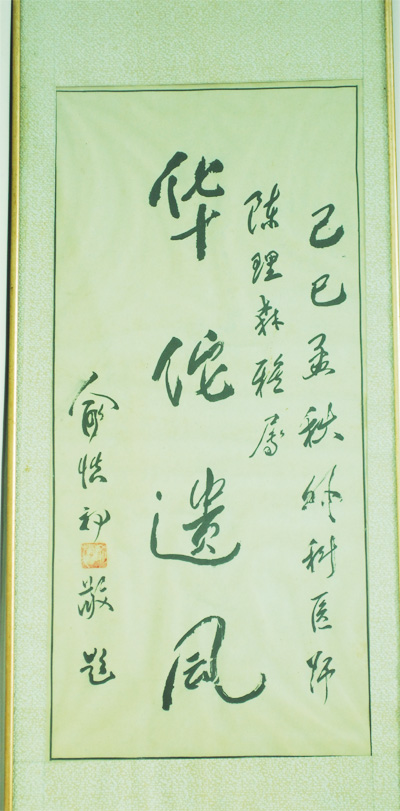 己巳孟秋科医师
陈理森雅
华佗遗风
俞慎初敬题